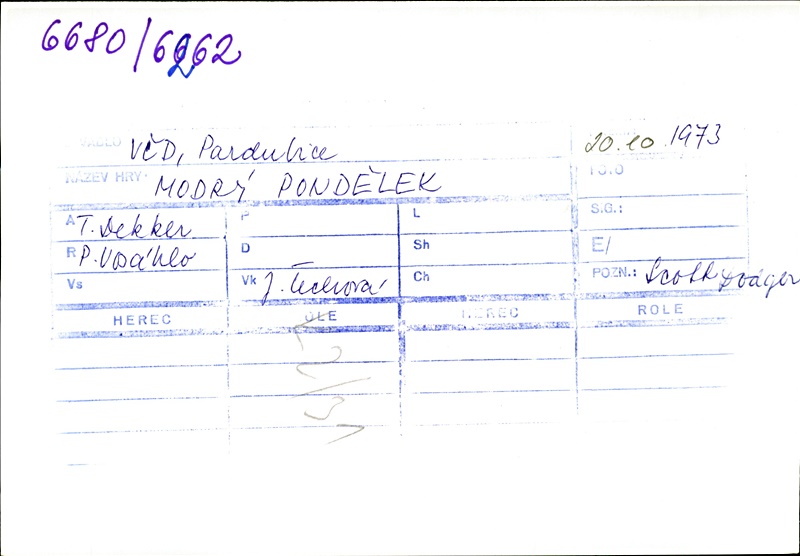 6680/6262
VČD, Pardubice 20.10.1973
NÁZEV HRY: MODRÝ PONDĚLEK
A T. Dekker P L S.G.:
R P. Vosáhlo D Sh E/
Vs Vk J. Čechová Ch POZN.: Scott
HEREC ROLE HEREC ROLE